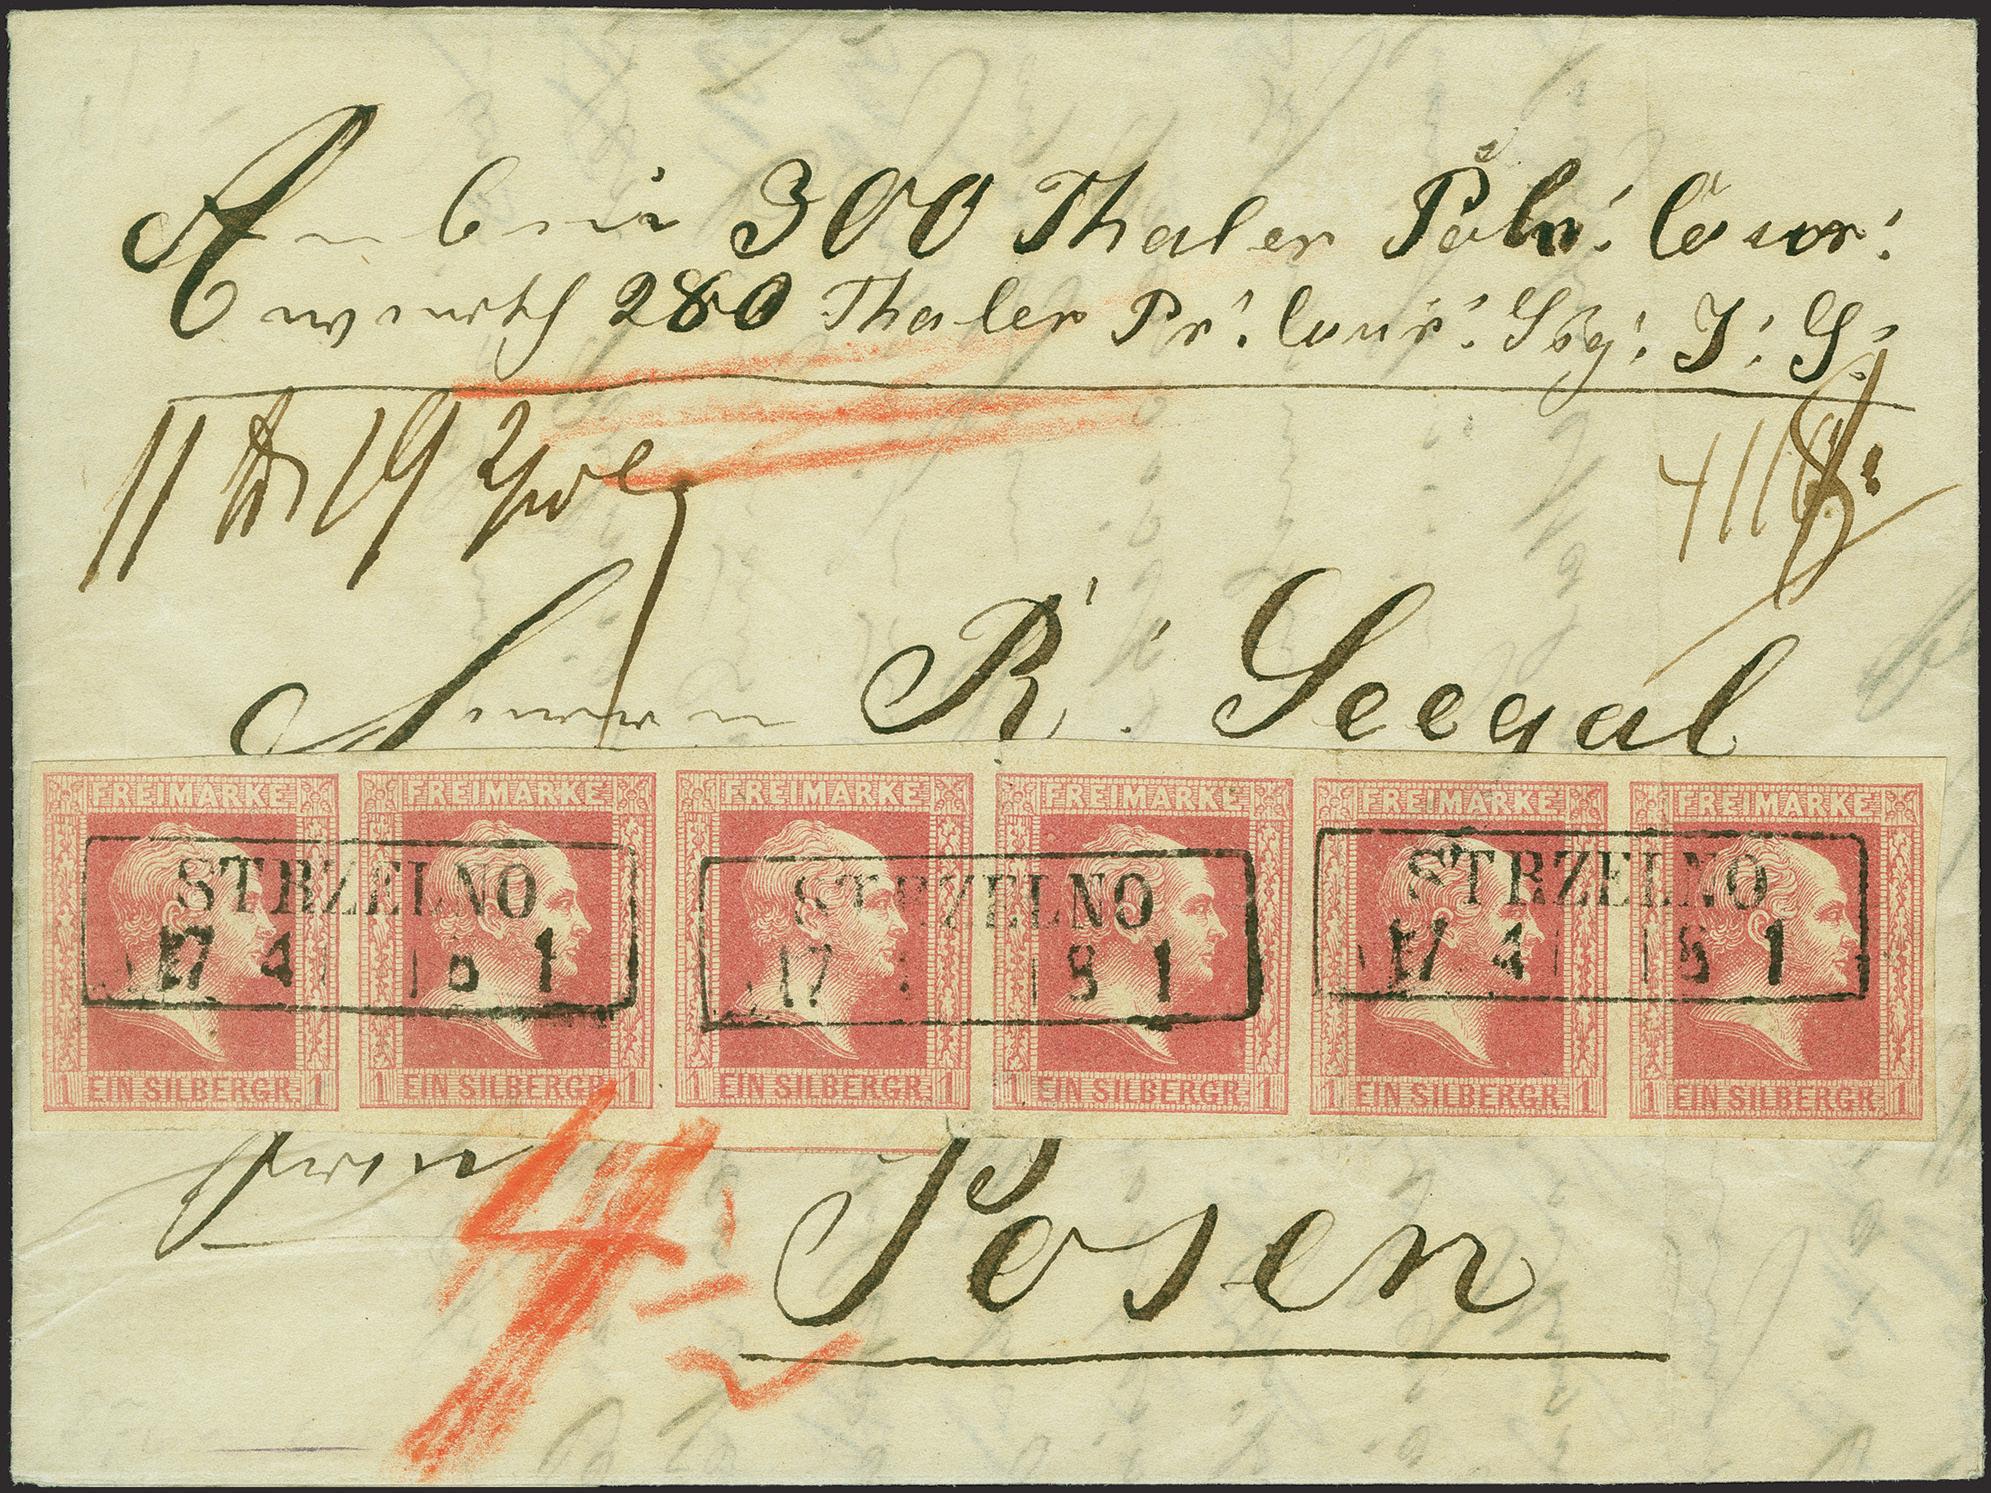 Anbei 300 Thaler Poln: Cour:
werth 280 Thaler Pr: Cour: J: S:
11 19
Herrn R: Seegal
FREIMARKE FREIMARKE FREIMARKE FREIMARKE FREIMARKE FREIMARKE
STRZELNO STRZELNO STRZELNO
17 4 8 1 17 8 1 17 4 8 1
1 EIN SILBERGR. 1 1 EIN SILBERGR. 1 1 EIN SILBERGR. 1 1 EIN SILBERGR. 1 1 EIN SILBERGR. 1 1 EIN SILBERGR. 1
4
Posen